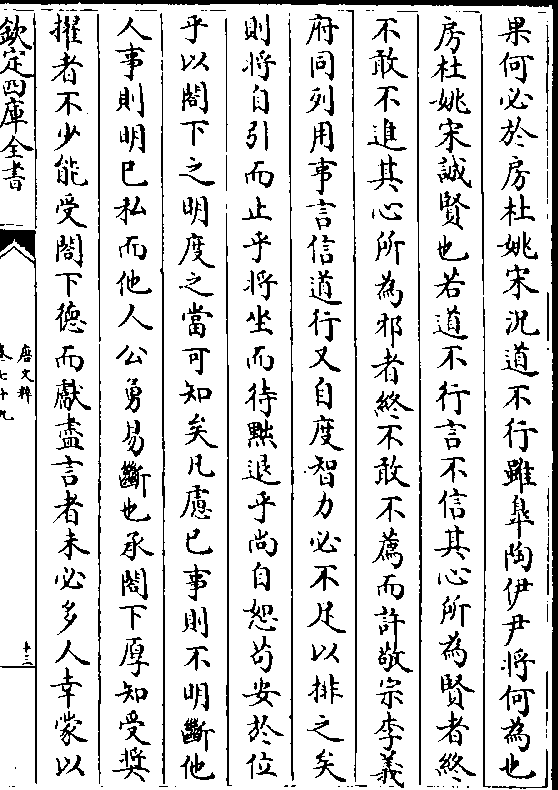 果何必於房杜姚宋況道不行雖臯陶伊尹將何為也
房杜姚宋誠賢也若道不行言不信其心所為賢者終
不敢不進其心所為邪者終不敢不薦而許敬宗李義
府同列用事言信道行又自度智力必不足以排之矣
則將自引而止乎將坐而待黜退乎尚自恕茍安於位
乎以閤下之明度之當可知矣凡慮已事則不明斷他
人事則明已私而他人公勇易斷也承閤下厚知受奬
擢者不少能受閤下德而獻盡言者未必多人幸蒙以
欽定四庫全書
唐文粹
卷七十九
十三